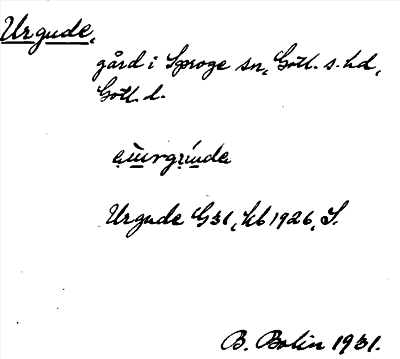 Urgude,
gård i Sproge sn, Gotl. s. hd,
Gotl. l.
Urgude G31, kb 1926, S.
B. Bolin 1931.